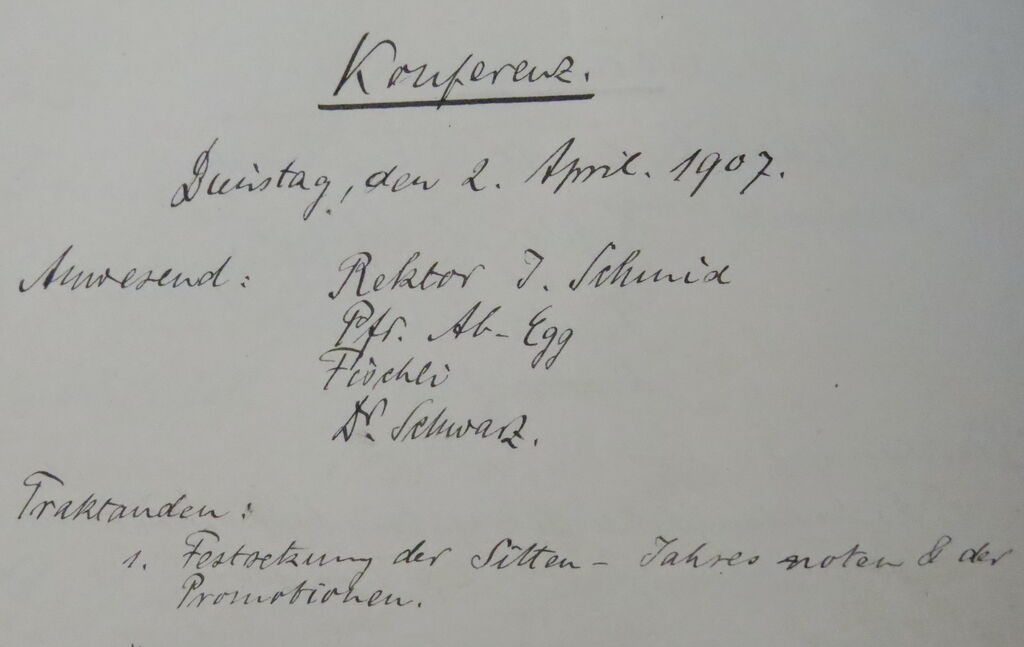 Konferenz.
Dienstag, den 2. April. 1907.
Anwesend: Rektor J. Schmid
Pfr. Ab-Egg
Fischli
Dr. Schwarz.
Traktanden:
1. Festsetzung der Sitten - Jahres noten & der
Promotionen.